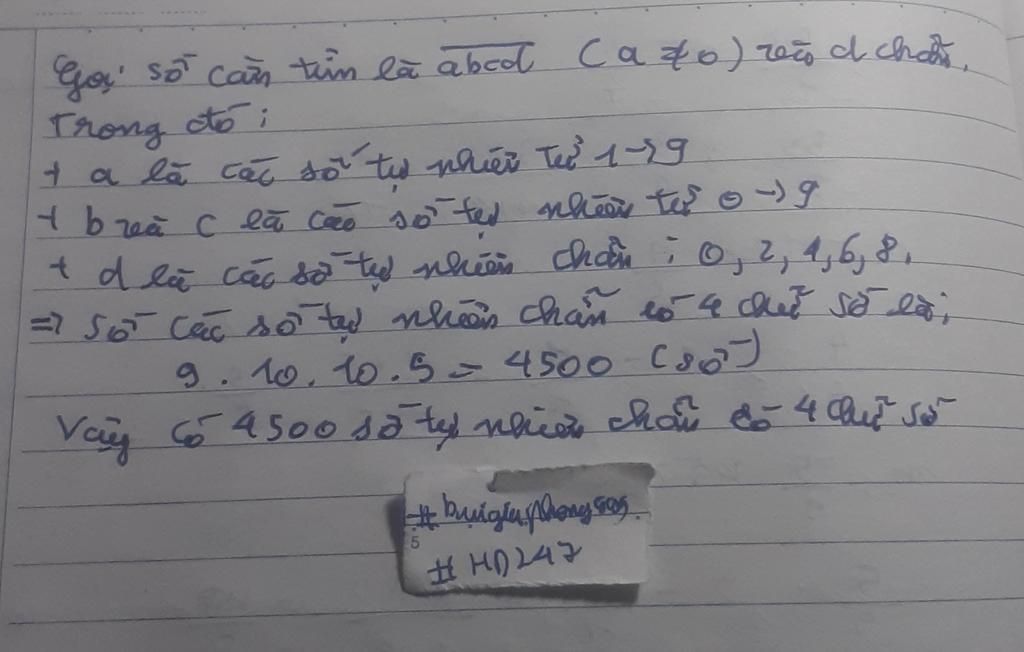 Gọi số cần tìm là abcd (a ≠ 0) và d chẵn.
Trong đó:
+ a là các số tự nhiên từ 1 → 9
+ b và c là các số tự nhiên từ 0 → 9
+ d là các số tự nhiên chẵn: 0, 2, 4, 6, 8.
=> số các số tự nhiên chẵn có 4 chữ số là:
9 . 10 . 10 . 5 = 4500 (số)
Vậy có 4500 số tự nhiên chẵn có 4 chữ số
5
# HD247